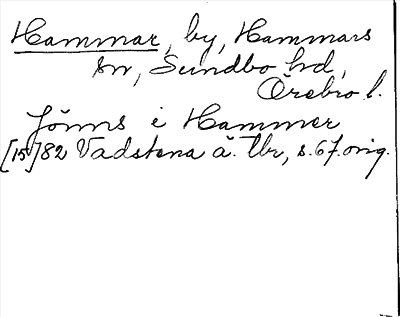 Hammar, by, Hammars
sn, Sundbo hd,
Örebro l.
Jöns i Hammer
[15]82 Vadstena ä. tbr, s. 67. orig.